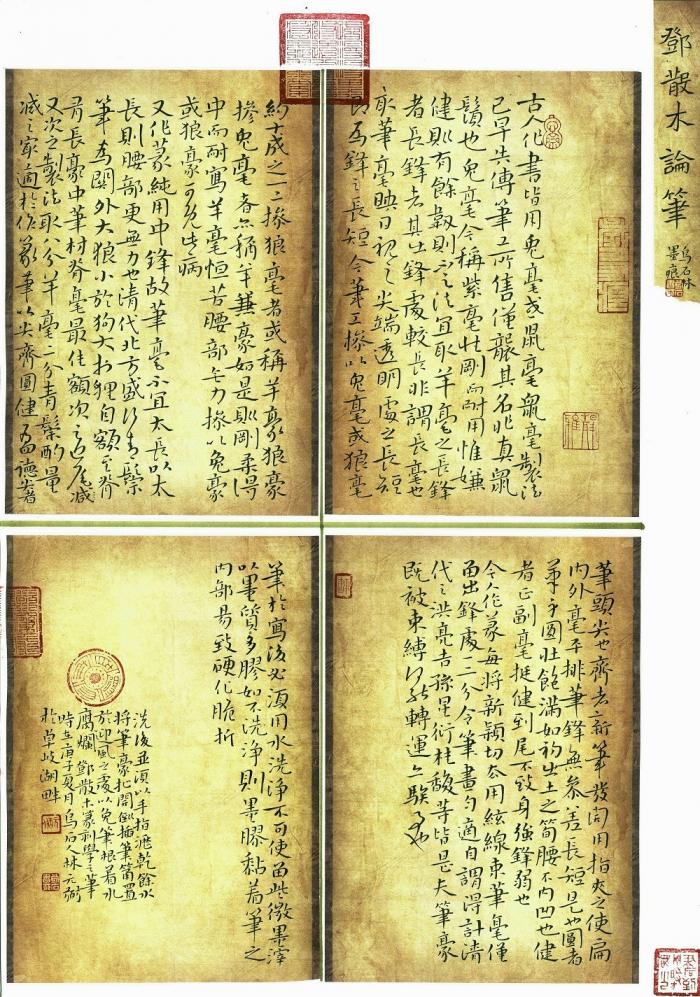 鄧散木論筆
烏石林
墨痕
古人作書皆用兔毫或鼠毫鼠毫製法
已早失傳筆工所售僅襲其名非真鼠
鬚也兔毫今稱紫毫性剛而耐用惟嫌
健則有餘韌則不足宜取羊毫之長鋒
者長鋒者其出鋒處較長非謂長毫也
取筆毫映日視之尖端透明處之長短
即為鋒之長短今筆工摻以兔毫或狼毫
約十成之一二摻狼毫者或稱羊毫狼豪
摻兔毫者亦稱羊兼豪如是則剛柔得
中而耐寫羊毫恒苦腰部無力摻以兔豪
或狼豪可免此病
又作篆純用中鋒故筆毫不宜太長以太
長則腰部更無力也清代北方盛行青鬃
筆為關外大狼小於狗大於狸自額至脊
有長豪中筆材脊毫最佳額次之近尾減
又次之製法取八分羊毫二分青鬃酌量
減之最適於作篆筆以尖齊圓健為四德尖者
筆頭尖也齊者新筆發開用指夾之使扁
內外毫平排筆鋒無參差長短是也圓者
筆身圓壯飽滿如初出土之筍腰不內凹也健
者正副毫挺健到尾不致身強鋒弱也
今人作篆每將新穎切去用絃線束筆毫僅
留出鋒處二分令筆畫勻適自謂得計清
代之洪亮吉孫星衍桂馥等皆是夫筆豪
既被束縛何能轉運
筆於寫後必須用水洗淨不可使留些微墨滓
以墨質多膠如不洗淨則墨膠黏着筆之
內部易致硬化脆折
洗後並須以手指瀝乾餘水
將筆豪扯開斜插筆筒置
於迎風之處以免筆根着水
腐爛鄧散木篆刻學之筆
時在庚子夏月烏石林元弼
於卓岐湖畔